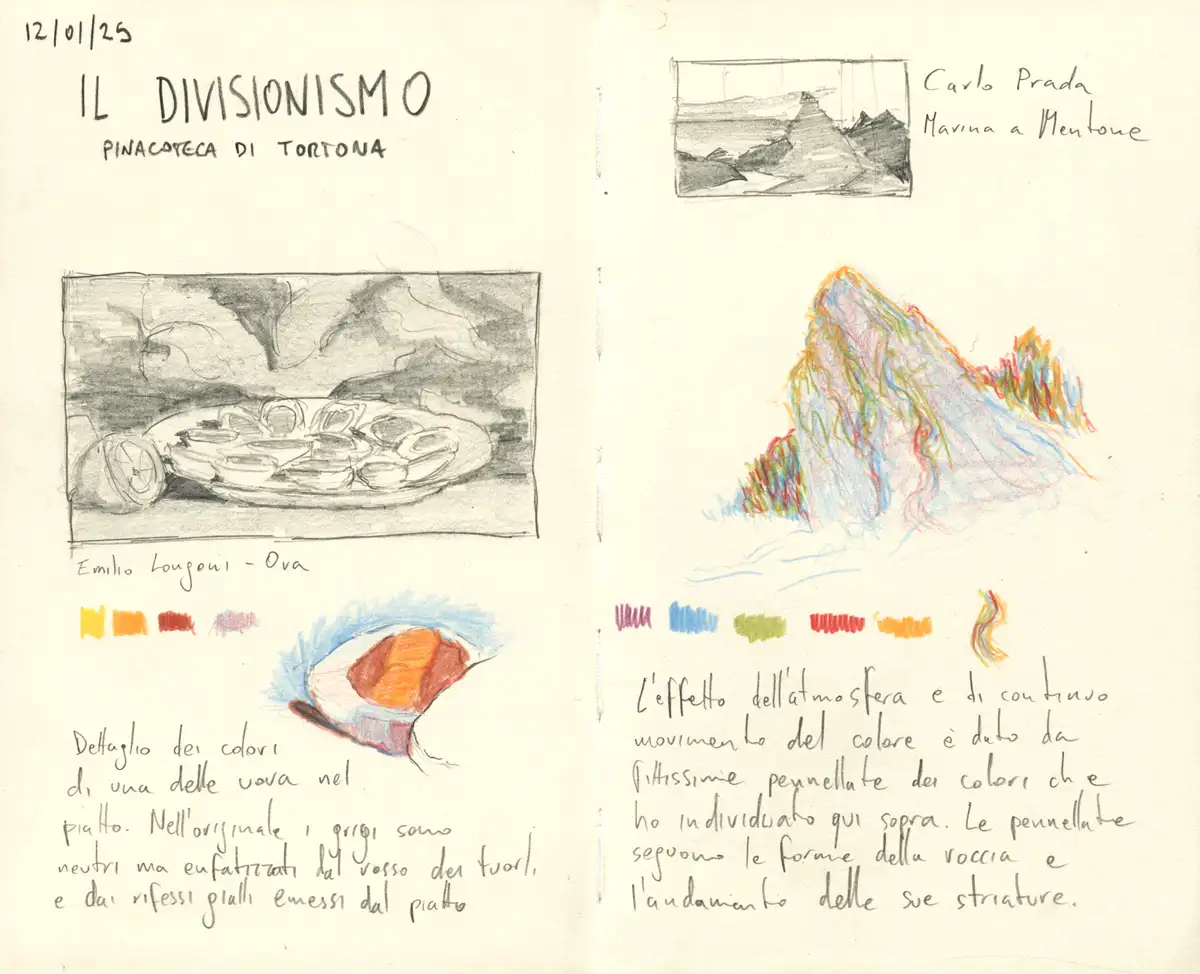 12/01/25
IL DIVISIONISMO
PINACOTECA DI TORTONA
Emilio Longoni - Ova
Dettaglio dei colori
di una delle uova nel
piatto. Nell'originale i grigi sono
neutri ma enfatizzati dal rosso dei tuorli
e dai rifessi gialli emessi dal piatto
Carlo Prada
Marina a Mentone
L'effetto dell'atmosfera e di continuo
movimento del colore è dato da
fittissime pennellate dei colori che
ho individuato qui sopra. Le pennellate
seguono le forme della roccia e
l'andamento delle sue striature.